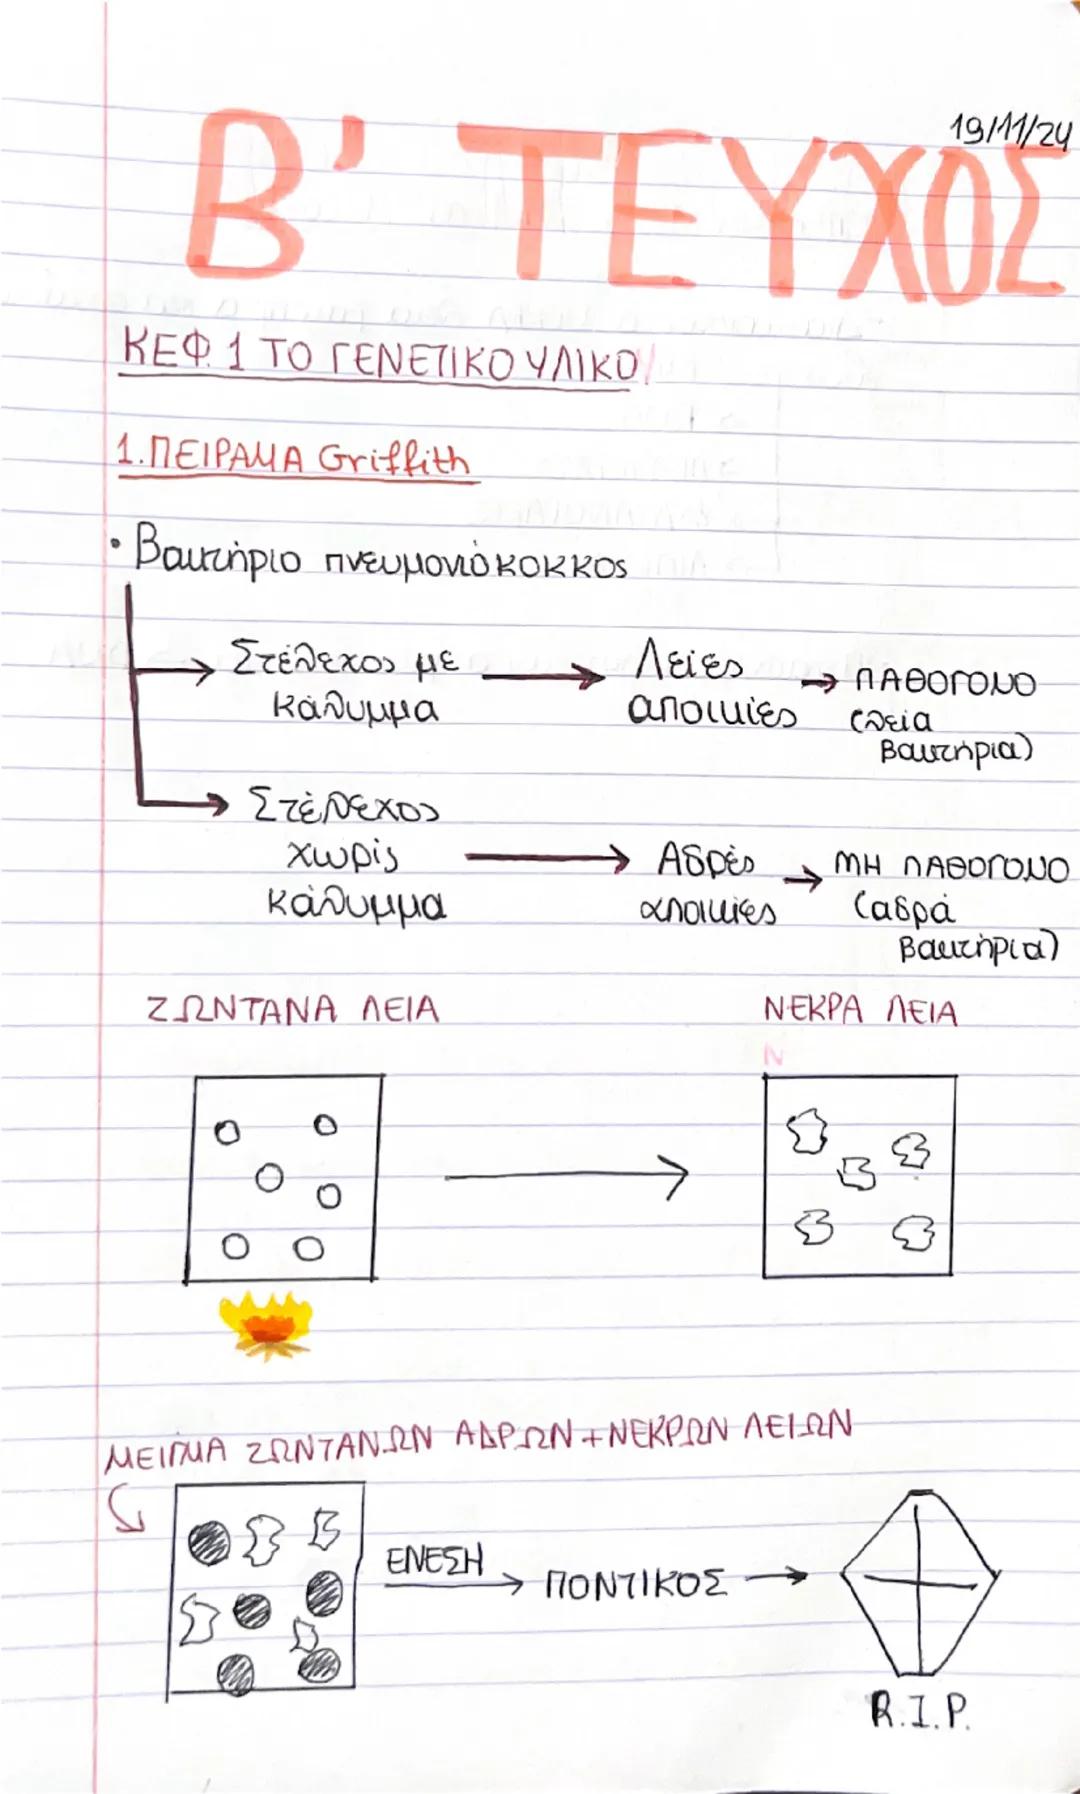 19/11/24
Β' ΤΕΥΧΟΣ
ΚΕΦ. 1 ΤΟ ΓΕΝΕΤΙΚΟ ΥΛΙΚΟ
1. ΠΕΙΡΑΜΑ Griffith
• Βακτήριο πνευμονιόκοκκος
Στέλεχος με → Λείες → ΠΑΘΟΓΟΝΟ
κάλυμμα αποικίες (λεία
βακτήρια)
Στέλεχος
χωρίς → Αδρές → ΜΗ ΠΑΘΟΓΟΝΟ
κάλυμμα αποικίες (αδρά
βακτήρια)
ΖΩΝΤΑΝΑ ΛΕΙΑ ΝΕΚΡΑ ΛΕΙΑ
Ν
ΜΕΙΓΜΑ ΖΩΝΤΑΝΩΝ ΑΔΡΩΝ + ΝΕΚΡΩΝ ΛΕΙΩΝ
ΕΝΕΣΗ → ΠΟΝΤΙΚΟΣ →
R.I.P.